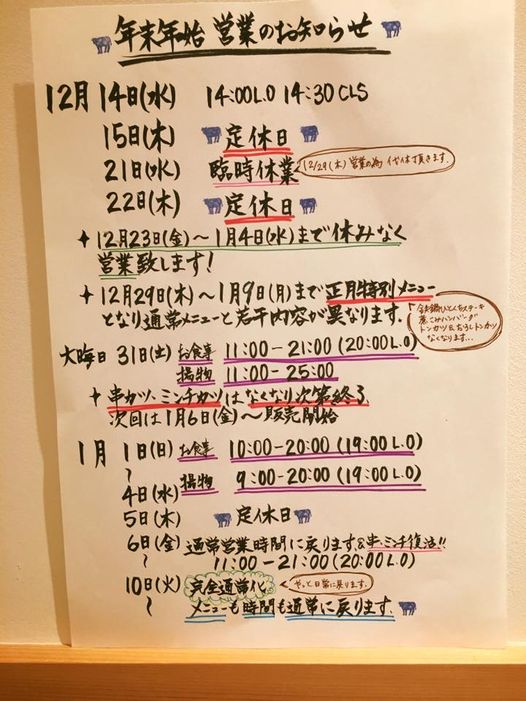 年末年始 営業のお知らせ
12月 14日(水) 14:00L.O 14:30 CLS
15日(木) 定休日
21日(水) 臨時休業
12/29(木)営業の為 代休頂きます.
22日(木) 定休日
✦ 12月23日(金)〜1月4日(水)まで休みなく
営業致します!
✦ 12月29日(木)〜1月9日(月)まで正月特別メニュー
となり通常メニューと若干内容が異なります.
ひとくちステーキ
煮こみハンバーグ
トンカツ&おろしトンカツ
なくなります...
大晦日 31日(土) お食事 11:00-21:00 (20:00L.O)
揚物 11:00-25:00
✦ 串カツ、ミンチカツはなくなり次第終了
次回は1月6日(金)〜販売開始
1月 1日(日) お食事 10:00-20:00 (19:00L.O)
〜
4日(水) 揚物 9:00-20:00 (19:00L.O)
5日(木) 定休日
6日(金) 通常営業時間に戻ります&串、ミンチ復活!!
〜 11:00-21:00 (20:00L.O)
10日(火) 完全通常化 やっと日常に戻ります.
〜 メニューも時間も通常に戻ります.